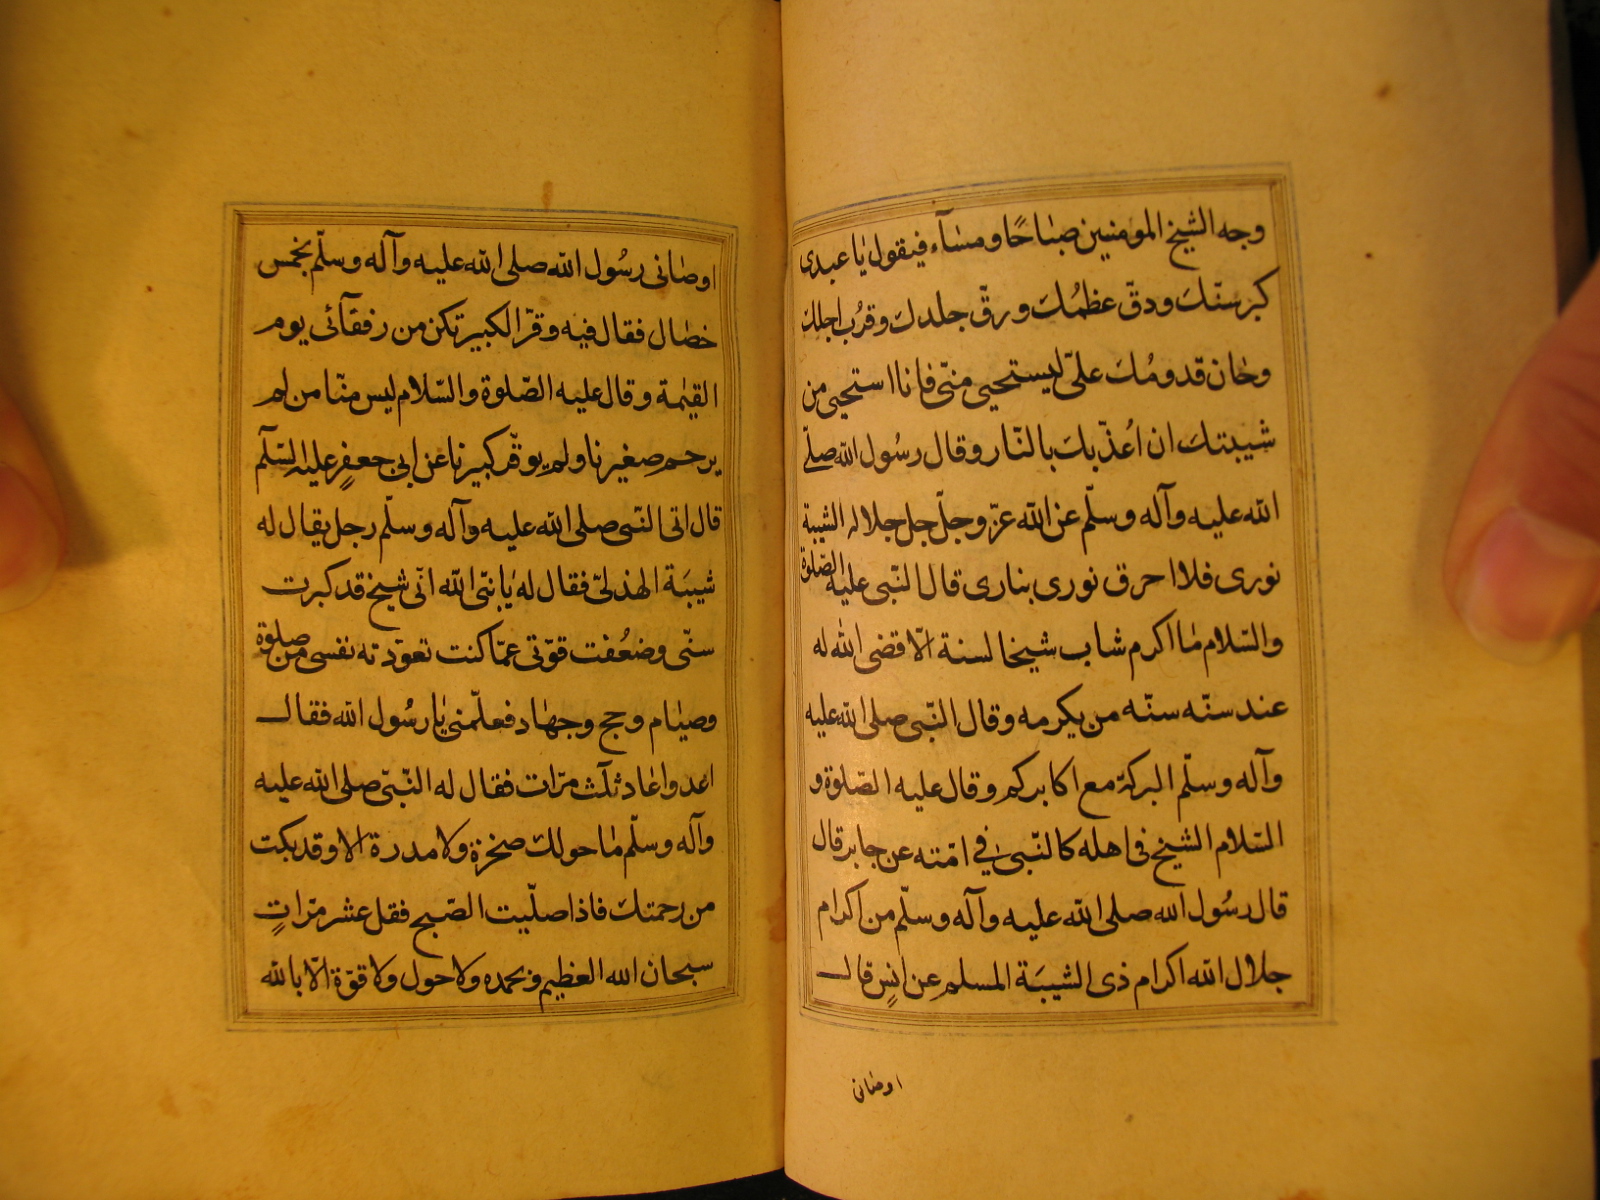 وجه الشيخ المومنين صباحًا ومسآء فيقول يا عبدى
كبر سنّك ودقّ عظمُك ورقّ جلدك وقرُب اجلك
وحان قدومُك علىّ ليستحيى منّى فانا استحيى من
شيبتك ان اُعذّبك بالنّار وقال رسُول الله صلّى
الله عليه وآله وسلّم عن الله عزّ وجلّ جل جلاله الشيبة
نورى فلا احرق نورى بنارى قال النّبى عليه الصّلوة
والسّلام ما اكرم شاب شيخا لسنة الّا قضى الله له
عند سنّه سنّه من يكرمه وقال النّبى صلى الله عليه
وآله وسلّم البركة مع اكابركم وقال عليه الصّلوة و
السّلام الشيخ فى اهله كالنّبى فى امّته عن جابر قال
قال رسُول الله صلى الله عليه وآله وسلّم من اكرام
جلال الله اكرام ذى الشيبَة المسلم عن انسٍ قال
اوصانى
اوصانى رسُول الله صلى الله عليه وآله وسلّم بخمس
خصال فقال فيه وقّر الكبير تكن من رفقآئى يوم
القيٰمة وقال عليه الصّلوة والسّلام ليس منّا من لم
يرحم صغيرنا ولم يوقّر كبيرنا عن ابى جعفرٍ عليه السّلم
قال اتى النّبى صلى الله عليه وآله وسلّم رجل يقال له
شيبَة الهذلىّ فقال له يا نبّى الله انّى شيخ قد كبرت
سنّى وضعُفت قوّتى عمّا كنت تعوّدته نفسى من صلوة
وصيام وحج وجهاد فعلّمنى يا رسُول الله فقال
اعد واعاد ثلٰث مرّات فقال له النّبّى صلى الله عليه
وآله وسلّم ما حولك صخرة ولا مدرة الا وقد بكت
من رحمتك فاذا صلّيت الصّبح فقل عشر مرّاتٍ
سبحان الله العظيم وبحمده ولا حول ولا قوّة الّا بالله